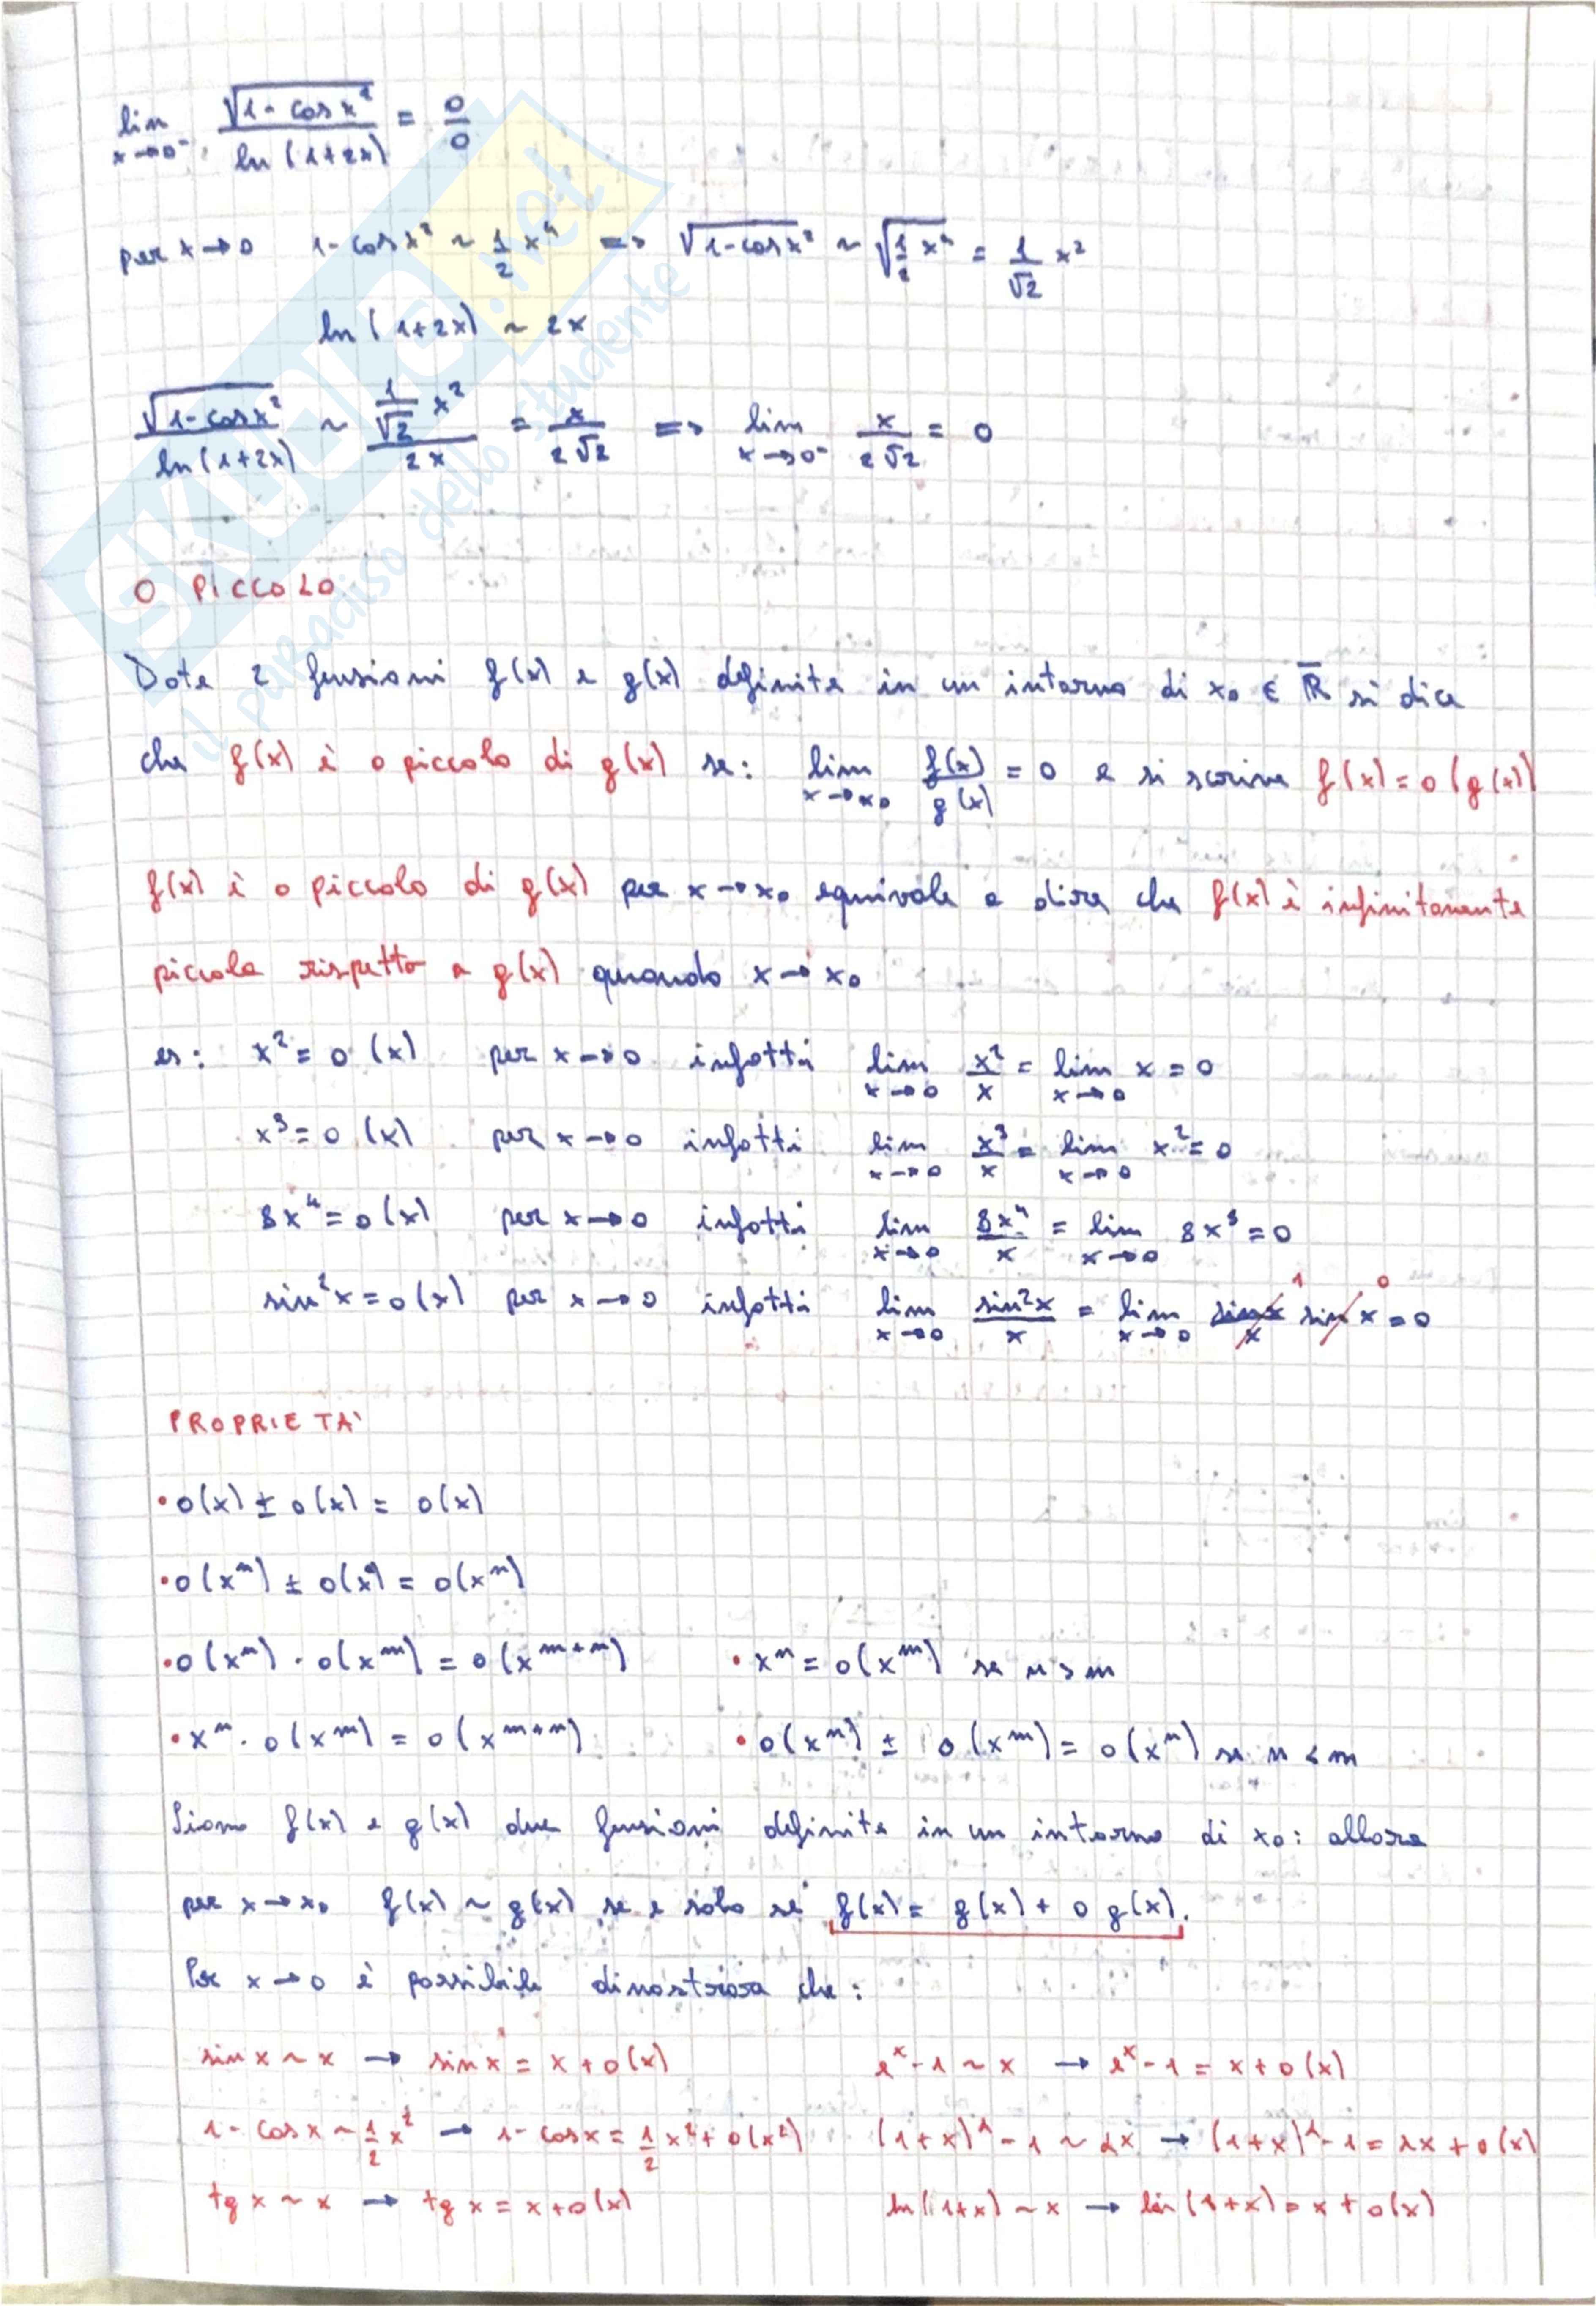 lim x→0⁻ √(1-cos x²) / ln(1+2x) = 0/0
per x→0 1-cos x² ~ 1/2 x⁴ => √(1-cos x²) ~ √(1/2 x⁴) = 1/√2 x²
ln(1+2x) ~ 2x
√(1-cos x²) / ln(1+2x) ~ (1/√2 x²) / 2x = x / 2√2 => lim x→0⁻ x / 2√2 = 0
O PICCOLO
Date 2 funzioni f(x) e g(x) definite in un intorno di x₀ ∈ R̅ si dice
che f(x) è o piccolo di g(x) se: lim x→x₀ f(x)/g(x) = 0 e si scrive f(x) = o(g(x))
f(x) è o piccolo di g(x) per x→x₀ equivale a dire che f(x) è infinitamente
piccola rispetto a g(x) quando x→x₀
es: x² = o(x) per x→0 infatti lim x→0 x²/x = lim x→0 x = 0
x³ = o(x) per x→0 infatti lim x→0 x³/x = lim x→0 x² = 0
8x⁴ = o(x) per x→0 infatti lim x→0 8x⁴/x = lim x→0 8x³ = 0
sin²x = o(x) per x→0 infatti lim x→0 sin²x/x = lim x→0 sinx/x 1 sin x 0 = 0
PROPRIETA'
• o(x) ± o(x) = o(x)
• o(xⁿ) ± o(xⁿ) = o(xⁿ)
• o(xⁿ) · o(xᵐ) = o(xᵐ⁺ⁿ) • xⁿ = o(xᵐ) se n > m
• xⁿ · o(xᵐ) = o(xᵐ⁺ⁿ) • o(xⁿ) ± o(xᵐ) = o(xⁿ) se n < m
Siano f(x) e g(x) due funzioni definite in un intorno di x₀: allora
per x→x₀ f(x) ~ g(x) se e solo se f(x) = g(x) + o g(x).
Per x→0 è possibile dimostrare che:
sin x ~ x → sin x = x + o(x) eˣ - 1 ~ x → eˣ - 1 = x + o(x)
1 - cos x ~ 1/2 x² → 1 - cos x = 1/2 x² + o(x²) (1+x)^α - 1 ~ αx → (1+x)^α - 1 = αx + o(x)
tg x ~ x → tg x = x + o(x) ln(1+x) ~ x → ln(1+x) = x + o(x)
SKUOLA.net
il paradiso dello studente